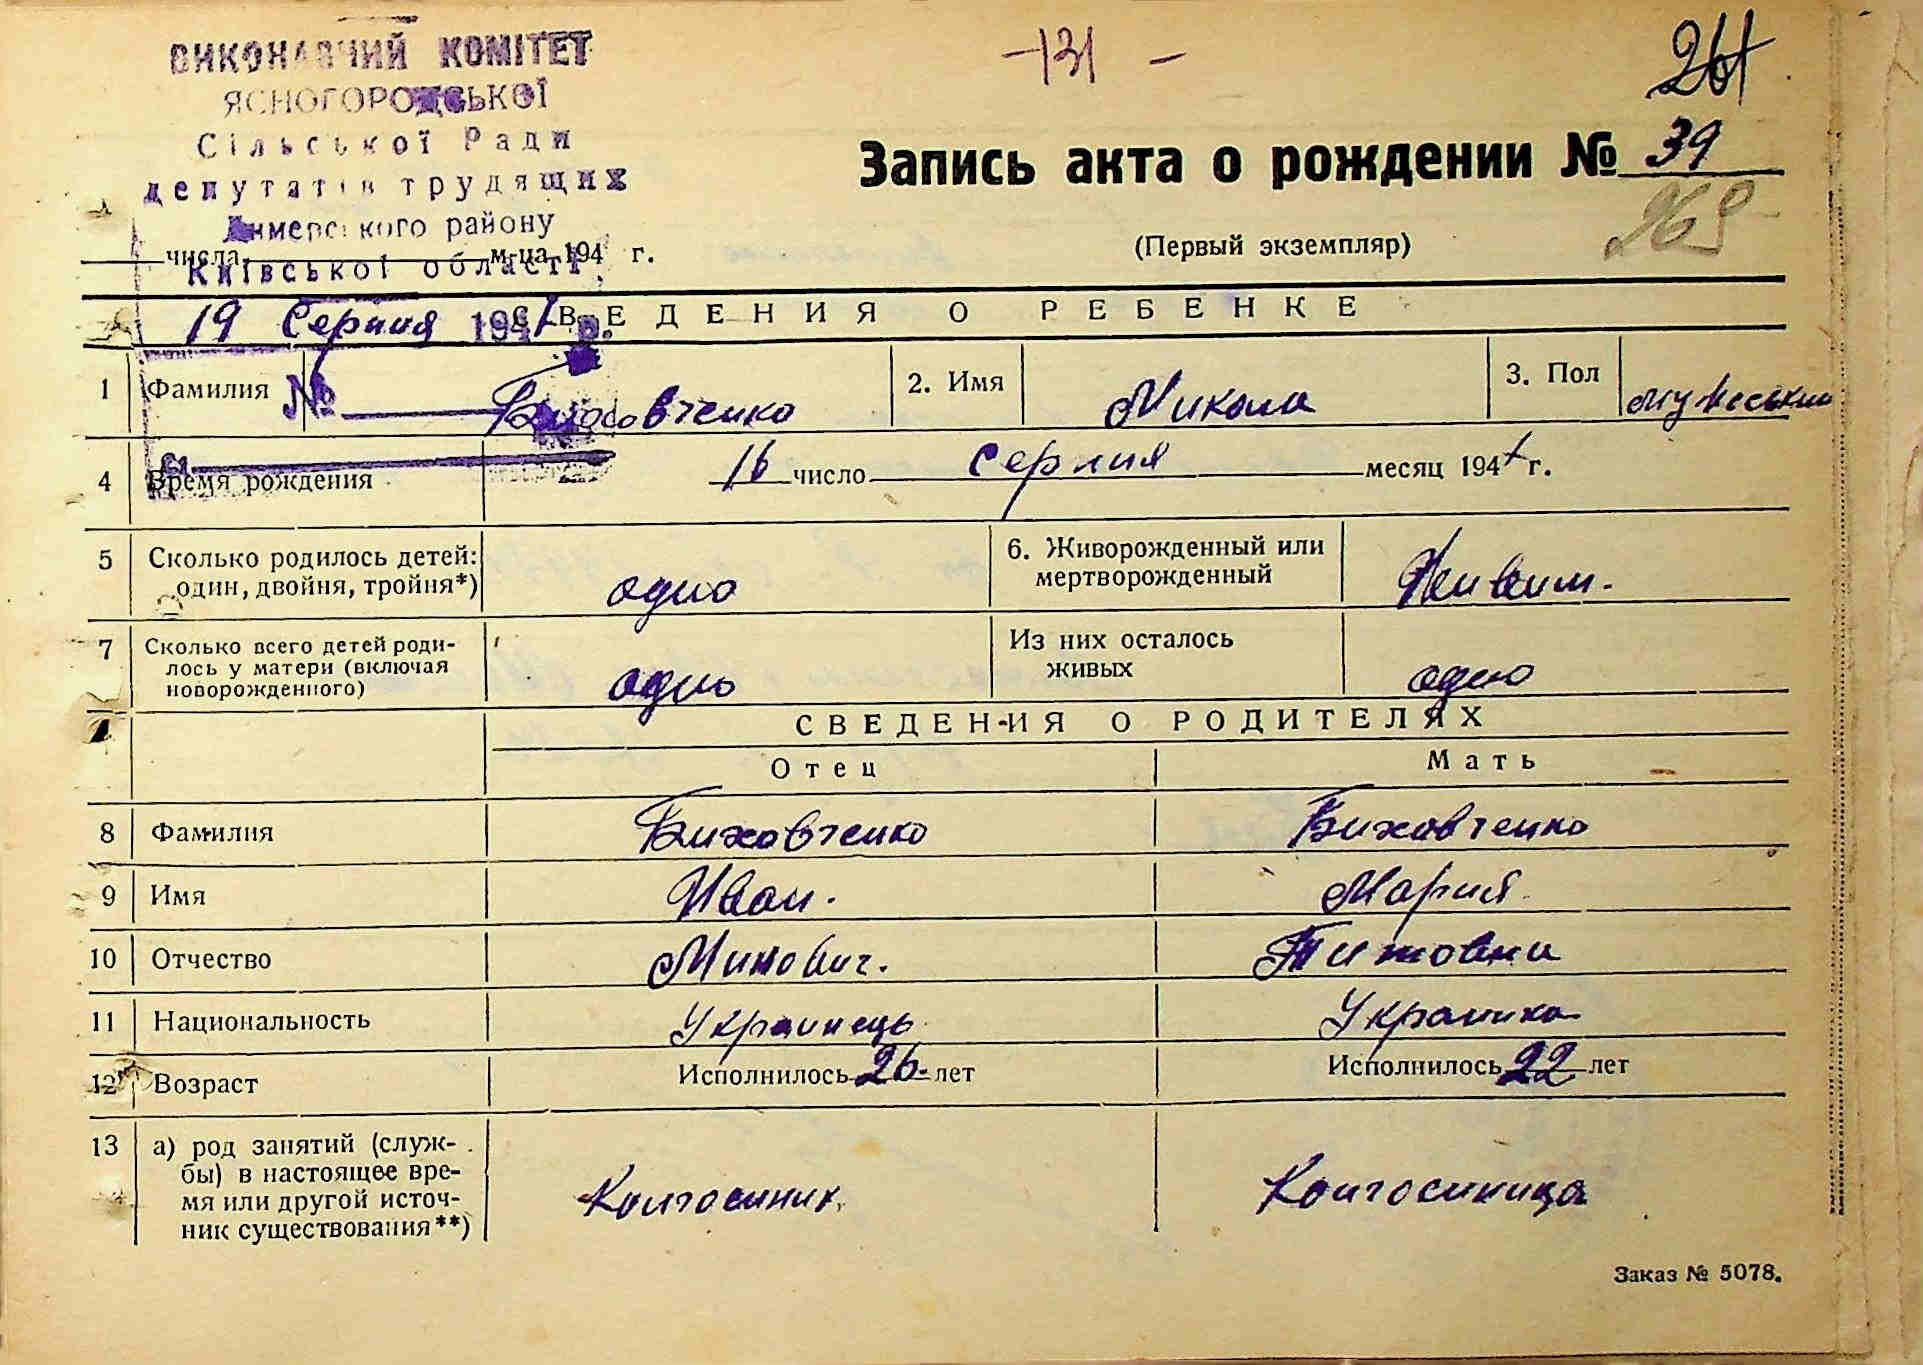 ВИКОНАВЧИЙ КОМІТЕТ
ЯСНОГОРОДСЬКОЇ
Сільської Ради
депутатів трудящих
Димерського району
Київської області
-131-
261
Запись акта о рождении № 39
269
(Первый экземпляр)
числа м-ца 194 г.
19 Серпня 1947 р.
СВЕДЕНИЯ О РЕБЕНКЕ
№
1 Фамилия Биховченко 2. Имя Микола 3. Пол мужеський
4 Время рождения 16 число Серпня месяц 1947 г.
5 Сколько родилось детей: один, двойня, тройня*) одно 6. Живорожденный или мертворожденный Живим.
7 Сколько всего детей родилось у матери (включая новорожденного) одно Из них осталось живых одно
СВЕДЕНИЯ О РОДИТЕЛЯХ
Отец Мать
8 Фамилия Биховченко Биховченко
9 Имя Иван. Мария
10 Отчество Минович. Титовна
11 Национальность Украинець Украинка
12 Возраст Исполнилось 26. лет Исполнилось 22 лет
13 а) род занятий (службы) в настоящее время или другой источник существования**) Колгоспник Колгоспница
Заказ № 5078.